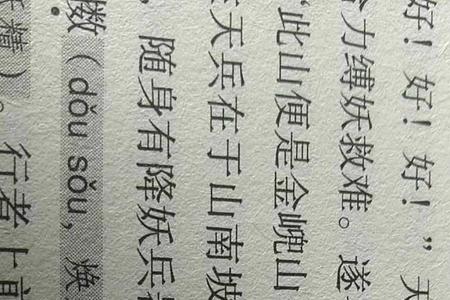 好！好！好！”天
力缚妖救难。遂
“此山便是金山
天兵在于山南坡
，随身有降妖兵
擞（dǒu sǒu，焕
精）。行者上